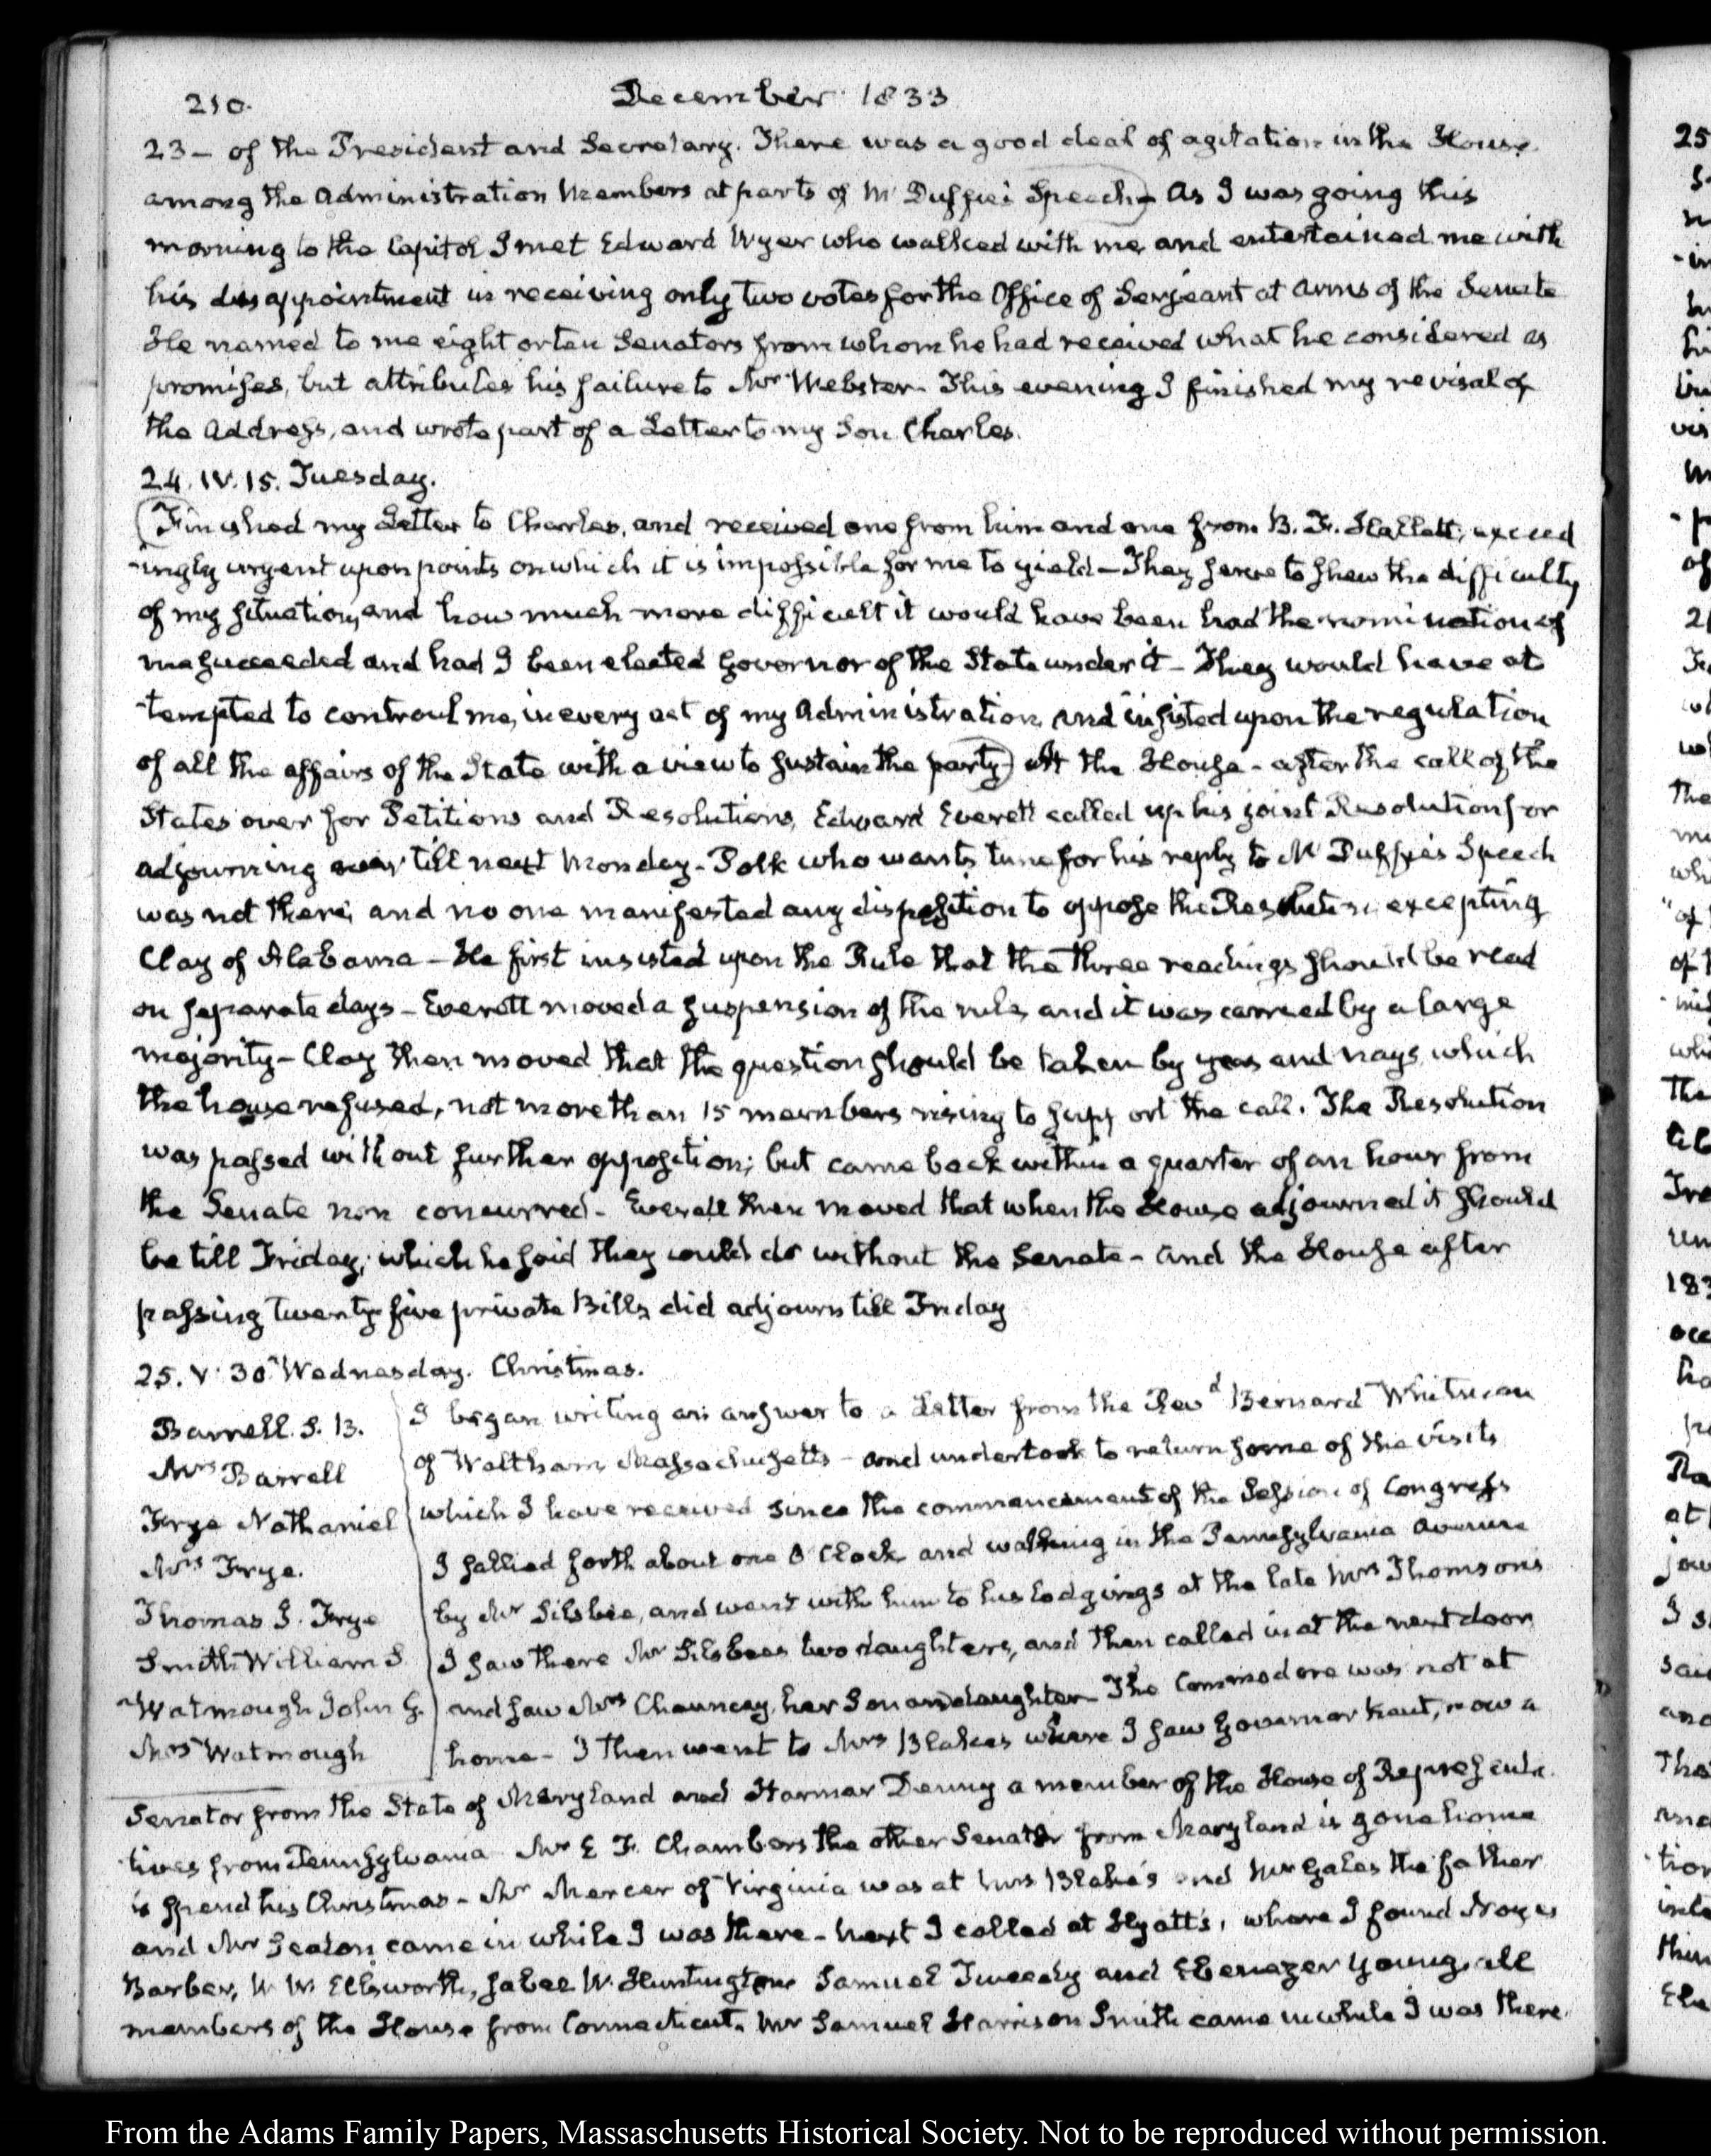 210.
December 1833
23 – of the President and Secretary. There was a good deal of agitation in the House
among the Administration Members at parts of Mc Duffie's Speech – As I was going this
morning to the Capitol I met Edward Wyer who walked with me, and entertained me with
his disappointment in receiving only two votes for the Office of Serjeant at Arms of the Senate
He named to me eight or ten Senators from whom he had received what he considered as
promises, but attributes his failure to Mr Webster – This evening I finished my revisal of
the Address, and wrote part of a Letter to my Son Charles.
24. IV. 15. Tuesday.
Finished my Letter to Charles, and received one from him and one from B. F. Hallett, exceed
ingly urgent upon points on which it is impossible for me to yield – They serve to shew the difficulty
of my situation, and how much more difficult it would have been had the nomination of
me succeeded and had I been elected Governor of the State under it – They would have at
tempted to controul me, in every act of my Administration, and insisted upon the regulation
of all the affairs of the State with a view to sustain the party – At the House – after the call of the
States over for Petitions and Resolutions, Edward Everett called up his joint Resolution for
adjourning over till next Monday – Polk who wants time for his reply to Mc Duffie's Speech
was not there, and no one manifested any disposition to oppose the Resolution, excepting
Clay of Alabama – He first insisted upon the Rule that the three readings should be read
on separate days – Everett moved a suspension of the rule, and it was carried by a large
majority – Clay then moved that the question should be taken by yeas and nays, which
the house refused, not more than 15 members rising to support the call. The Resolution
was passed without further opposition; but came back within a quarter of an hour from
the Senate non concurred – Everett then moved that when the House adjourned it should
be till Friday; which he said they could do without the Senate – and the House after
passing twenty-five private Bills, did adjourn till Friday
25. V. 30. Wednesday. Christmas.
Barrell. S. B.
Mrs Barrell
Frye Nathaniel
Mrs Frye.
Thomas J. Frye
Smith William S.
Watmough John G.
Mrs Watmough
I began writing an answer to a Letter from the Revd Bernard Whitman
of Waltham, Massachusetts – and undertook to return some of the visits
which I have received since the commencement of the Session of Congress
I sallied forth about one O'Clock and walking in the Pennsylvania Avenue
by Mr Silsbee, and went with him to his lodgings at the late Mrs Thomson's
I saw there Mr Silsbee's two daughters, and then called in at the next door
and saw Mrs Chauncey, her Son and daughter – The Commodore was not at
home – I then went to Mrs Blake's where I saw Governor Kent, now a
Senator from the State of Maryland and Harmar Denny a member of the House of Representa
tives from Pennsylvania Mr E. F. Chambers the other Senator from Maryland is gone home
to spend his Christmas – Mr Mercer of Virginia was at Mrs Blake's and Mr Gales the father
and Mr Seaton came in while I was there – Next I called at Hyatt's, where I found Noyes
Barber, W. W. Ellsworth, Jabez W. Huntington Samuel Tweedy and Ebenezer Young, all
members of the House from Connecticut. Mr Samuel Harrison Smith came in while I was there.
From the Adams Family Papers, Massachusetts Historical Society. Not to be reproduced without permission.